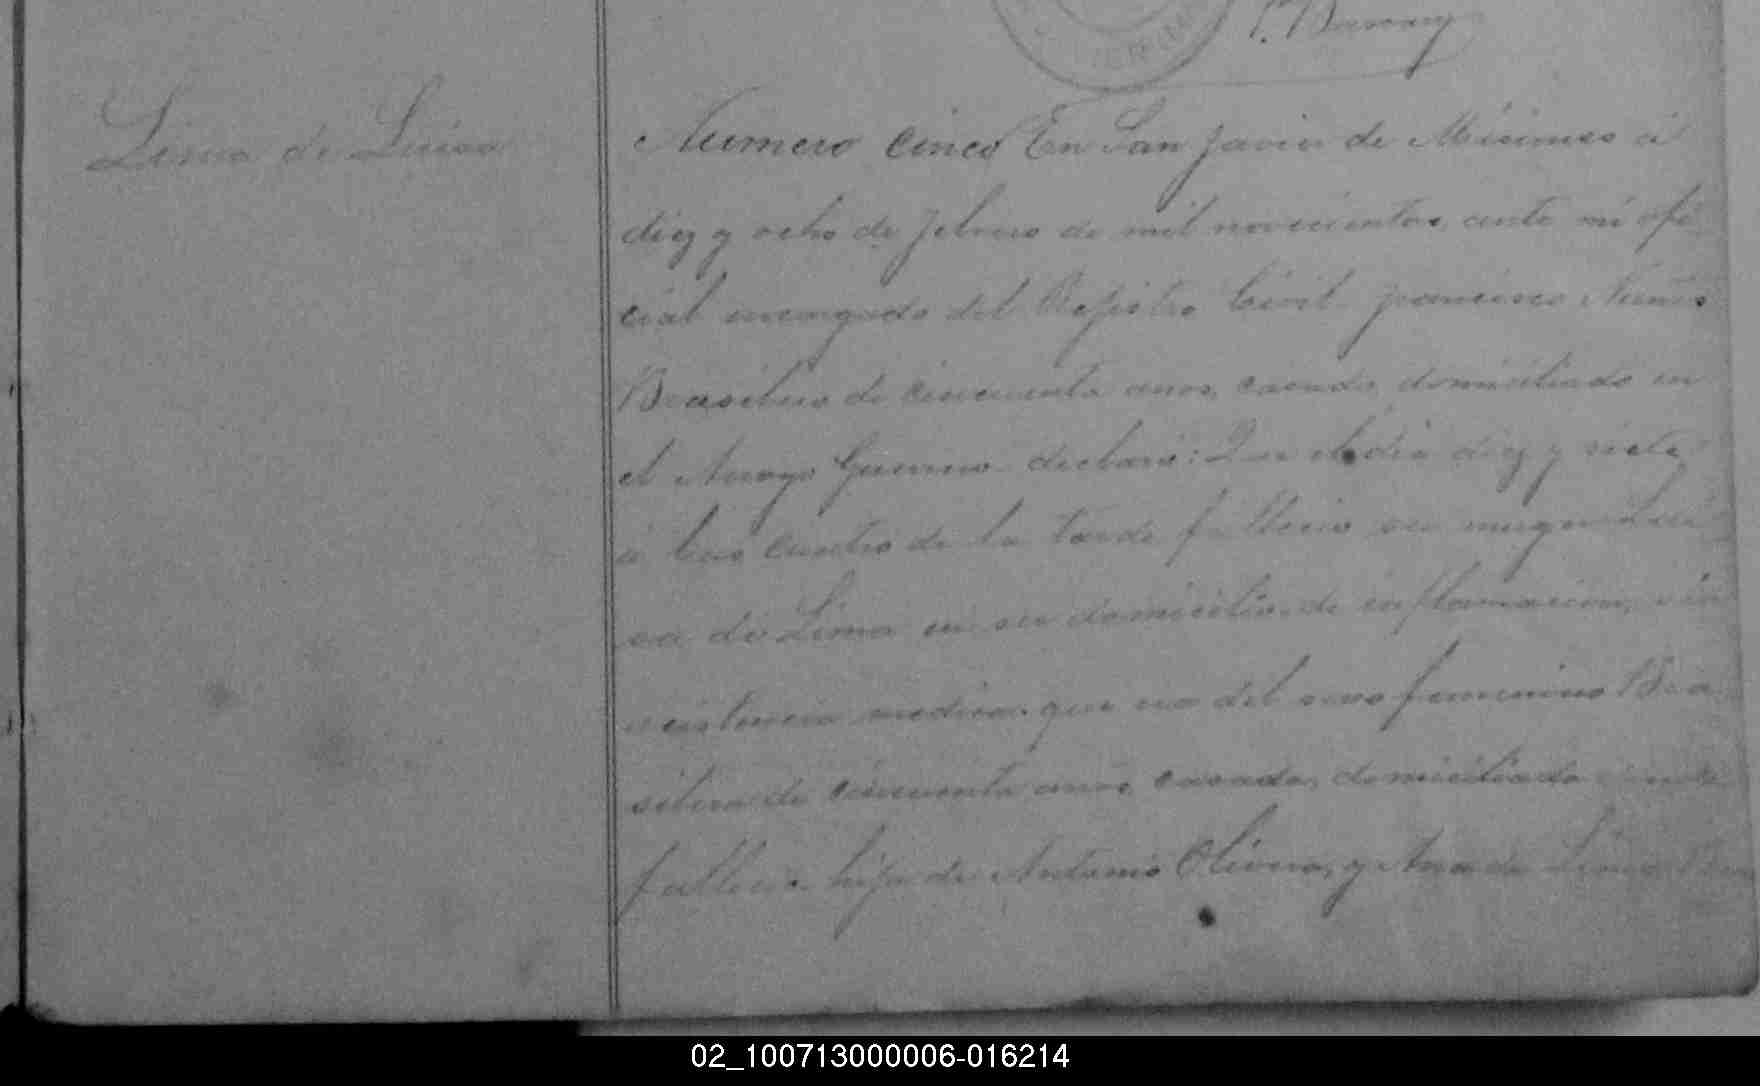 P. Bascary
Lima de Luisa
Numero cinco En San Javier de Misiones á
diez y ocho de febrero de mil novecientos, ante mi ofi
cial encargado del Registro Civil francisco Nunes
Brasilero de cincuenta anos, casado, domiciliado en
el Arroyo Guerrero declaró: Que el dia diez y siete
á las cuatro de la tarde fallecio su muger Lui
sa de Lima en su domicilio de inflamacion, sin
asistencia medica. que era del sexo femenino Bra
silera de cincuenta anos, casada, domiciliada donde
fallecio hija de Antonio Olivera, y Ana de Lima
02_100713000006-016214